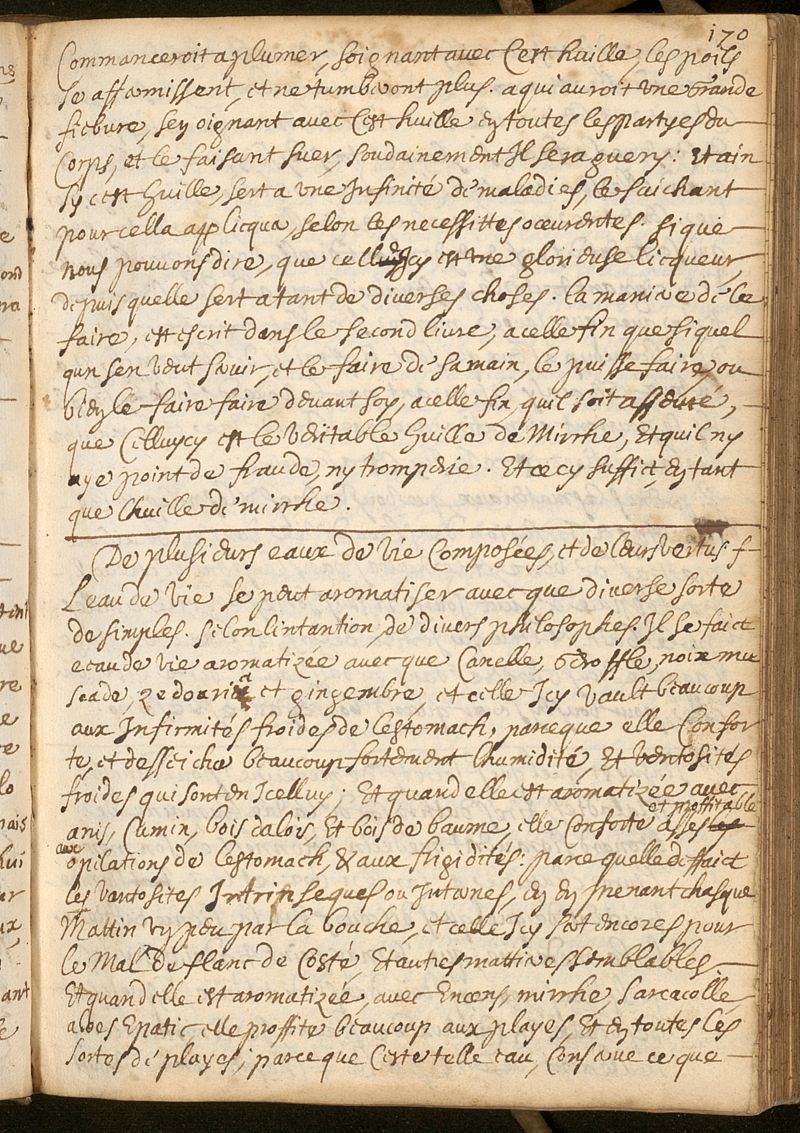 170
Commanceroit a plumer, soignant avec Cest huille, les poils
se affermissent, et ne tumberont plus. a qui auroit une Grande
fiebvre, sey oignant avec Cest huille ey toutes les partyes du
Corps, et le faisant suer, soudainement Il sera guery: Et ain
sy cest huille, sert a une Infinité de maladies, le saichant
pour cella applicquer, selon les necessittes occurentes. sique
nous pouvons dire, que celluy Icy est une glorieuse licqueur,
depuis quelle sert a tant de diverses choses. la maniere de le
faire, est escrit dans le second livre, a celle fin que si quel
qun sen veut servir, et le faire de sa main, le puisse faire, ou
biey le faire faire devant soy, a celle fin, quil soit asseuré,
que Celluycy est le veritable huille de Mirrhe, Et quil ny
aye point de fraude, ny tromperie. Et cecy suffict, ey tant
que lhuille de mirrhe.
De plusieurs eaux de vie Composées, et de leurs vertus
Leau de vie se peut aromatiser avec que diverse sorte
de simples. selon lintantion de divers philosophes. Il se faict
eau de vie aromatizée avec que Canelle, Giroffle, noix mu
scade, zedoaria et gingembre, et celle Icy vault beaucoup
aux Infirmités froides de lestomach, parceque elle Confor
te, et desseiche beaucoup fortement lhumidité, Et ventosités
froides qui sont en Icelluy; Et quand elle est aromatizée avec
anis, Cumin, bois dalois, Et bois de baume, elle Conforte asses et proffitable
aux opilations de lestomach, & aux frigidités: parce quelle deffaict
les vantosites Intrinseques ou Internes, ey ey prenant chasque
Mattin vy peu par la bouche, et celle Icy sert encores pour
le Mal de flanc de Costé, Et autres mattieres semblables
Et quand elle est aromatizée, avec Encens, mirrhe, sarcacolle
aloes Epatic, elle proffite beaucoup aux playes, Et ey toutes les
sortes de playes; parce que Ceste telle eau, Conserve ce que